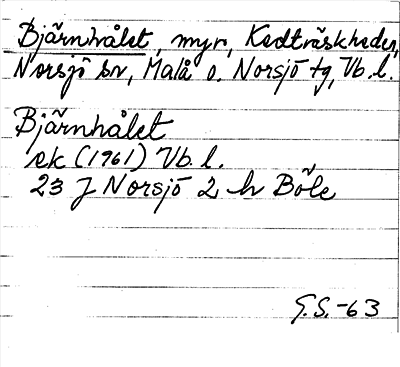 Björnhålet, myr, Kedträskheden,
Norsjö sn, Malå o. Norsjö tg, Vb. l.
Björnhålet
ek (1961) Vb. l.
23 J Norsjö 2 h Böle
G.S.-63